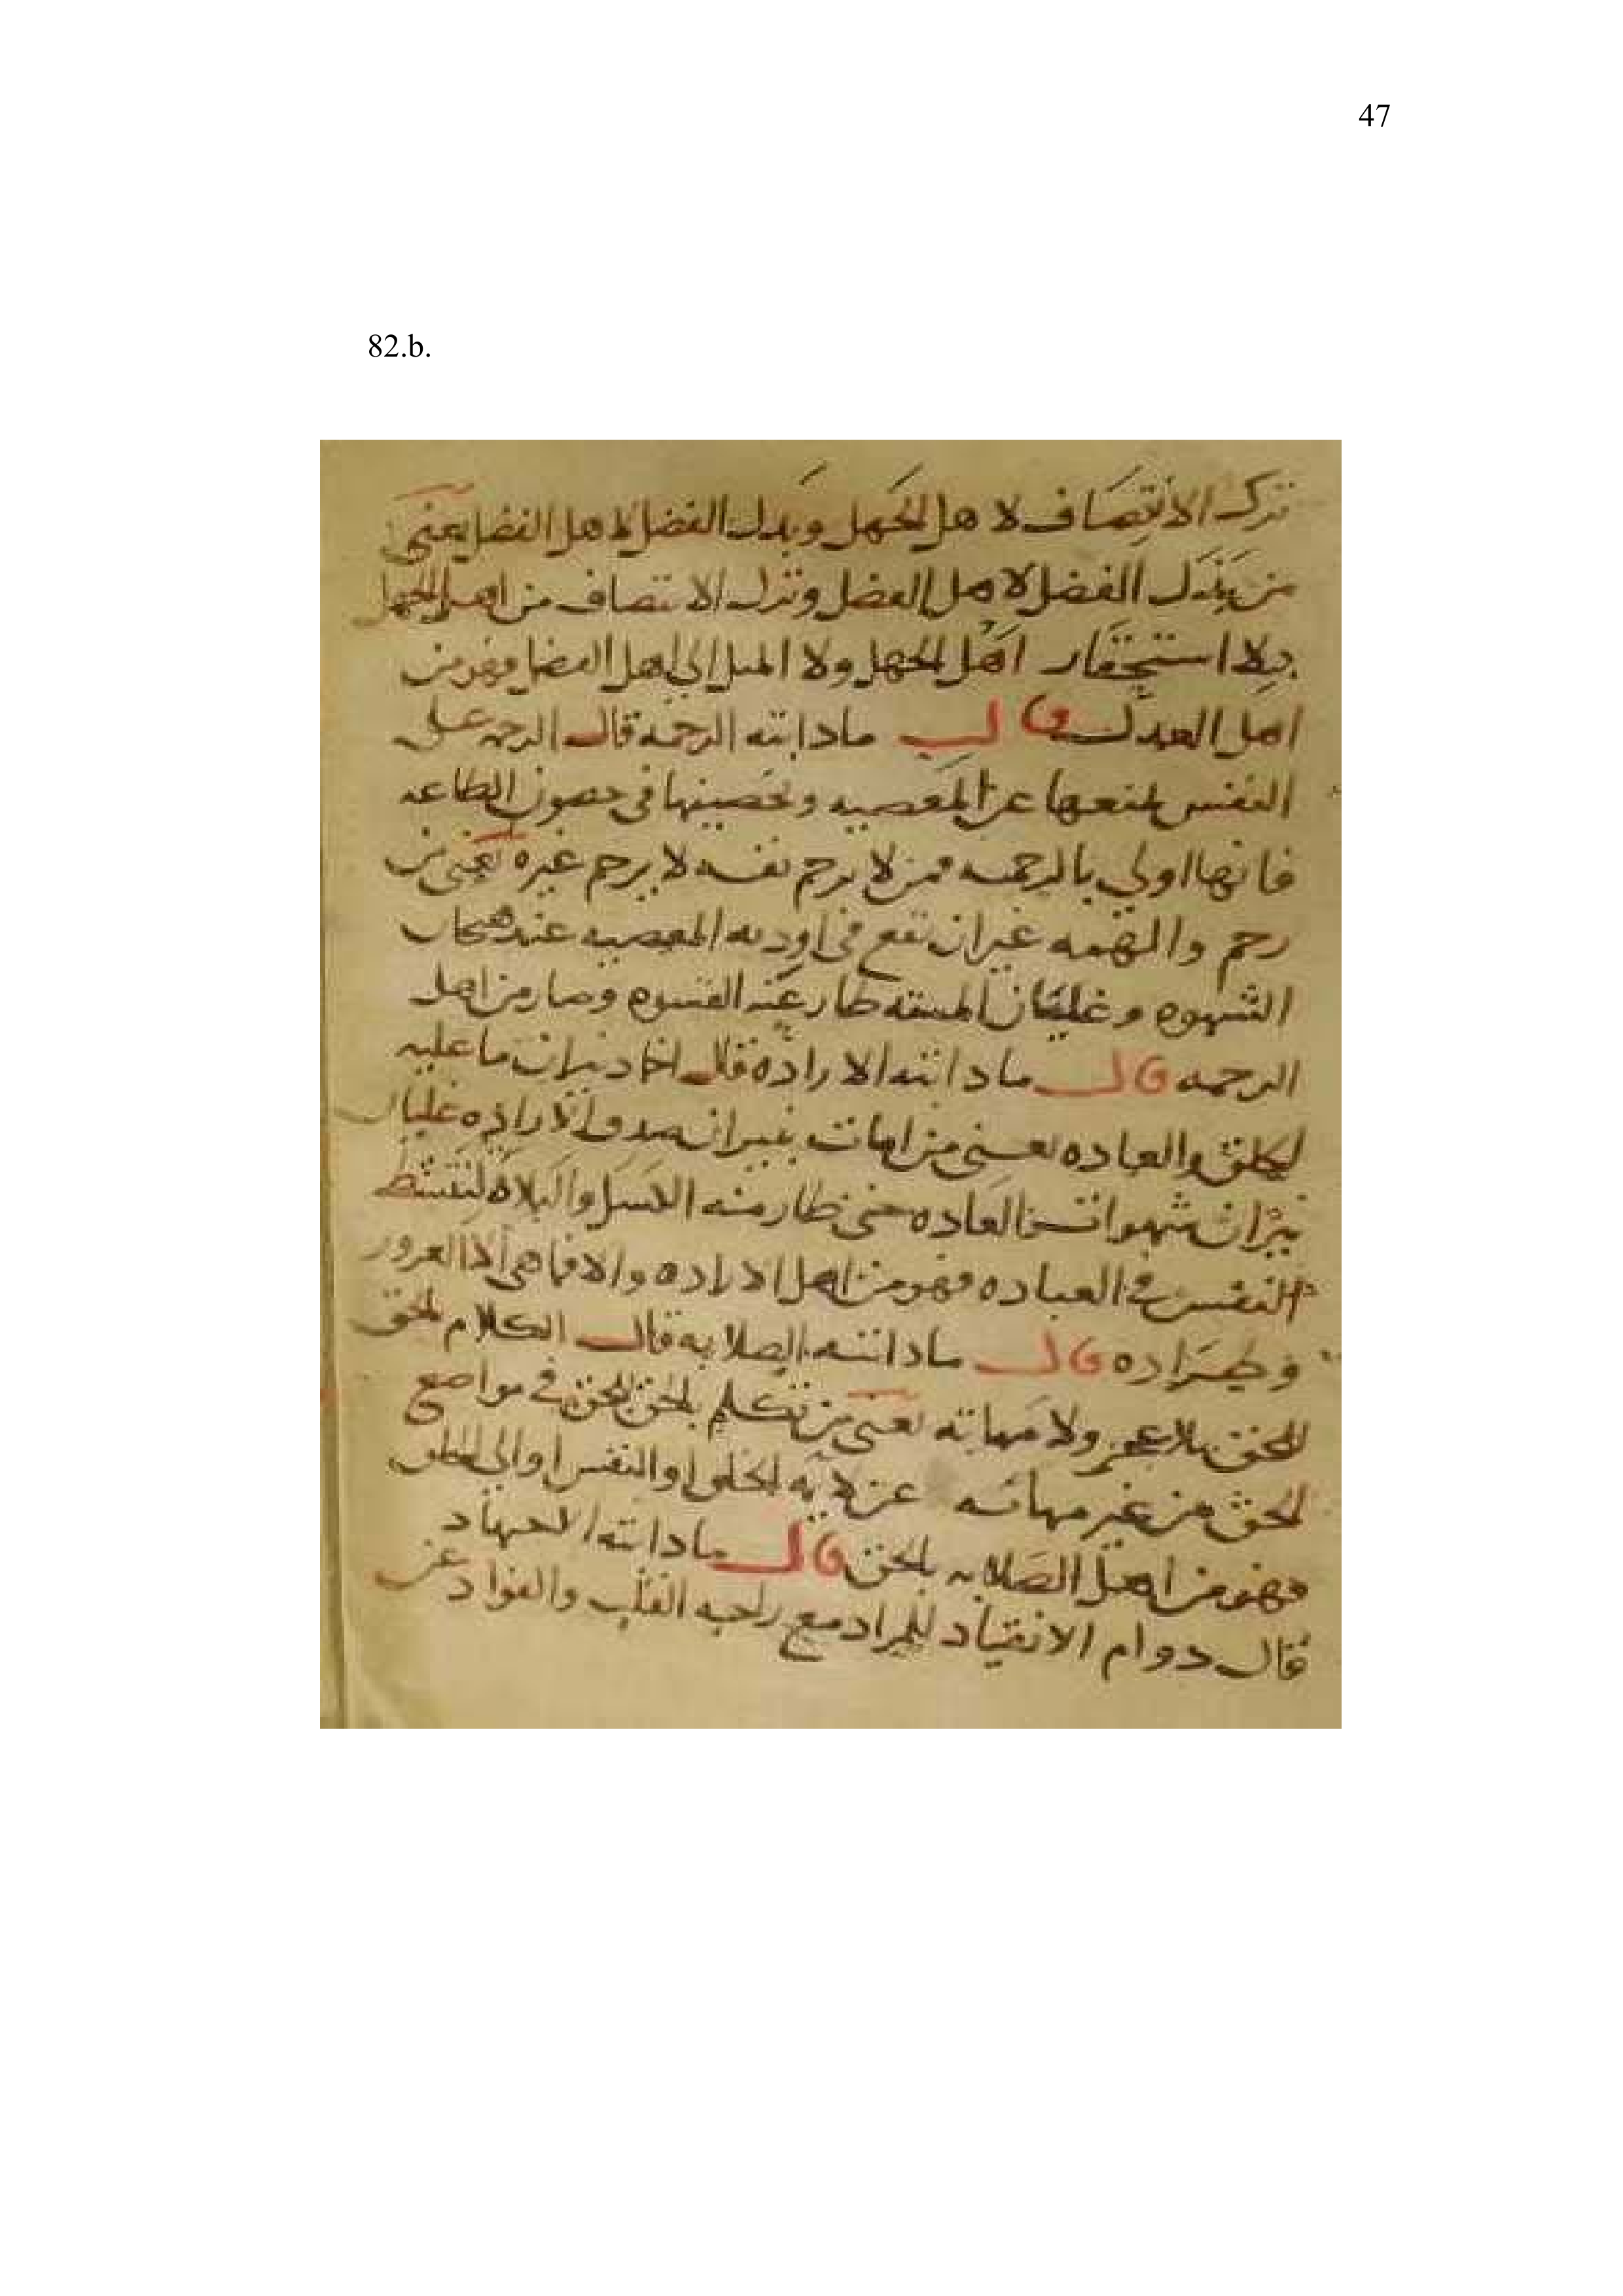 47
82.b.
ترك الانتصاف لاهل الجهل وبدل الفضل لاهل الفضل يعني
من يبدل الفضل لاهل الفضل وترك الانتصاف من اهل الجهل
بلا استحقار اهل الجهل ولا الميل الى اهل الفضل فهو من
اهل العدل قال ماذا نته الرحمه قال الرحمه على
النفس لمنعها عن المعصيه وتحصينها في حصون الطاعه
فانها اولى بالرحمه فمن لا يرحم نفسه لا يرحم غيره يعني من
رحم والهمه غير ان تقع في اوديه المعصيه عند هيجان
الشهوه وغليان طار عنه القسوه وصار من اهل
الرحمه قال ماذا نته الاراده قال اخاد نيران ما عليه
الخلق والعاده يعني من امات بنيران صدق الاراده غليان
نيران شهوات العاده حتى طار منه الكسل والبلاده لتنشط
النفس في العباده فهو من اهل الاراده والا فما هي الا الغرور
وطراده قال ماذا نته الصلابه قال الكلام بالحق
للحق بلا عجز ولا مهابه يعني من تكلم بالحق للحق في مواضع
الحق من غير مهابه عن الخلق او النفس او الى
فهو من اهل الصلابه بالحق قال ماذا نته الاجتهاد
قال دوام الانقياد للمراد مع راحه القلب والفواد عن